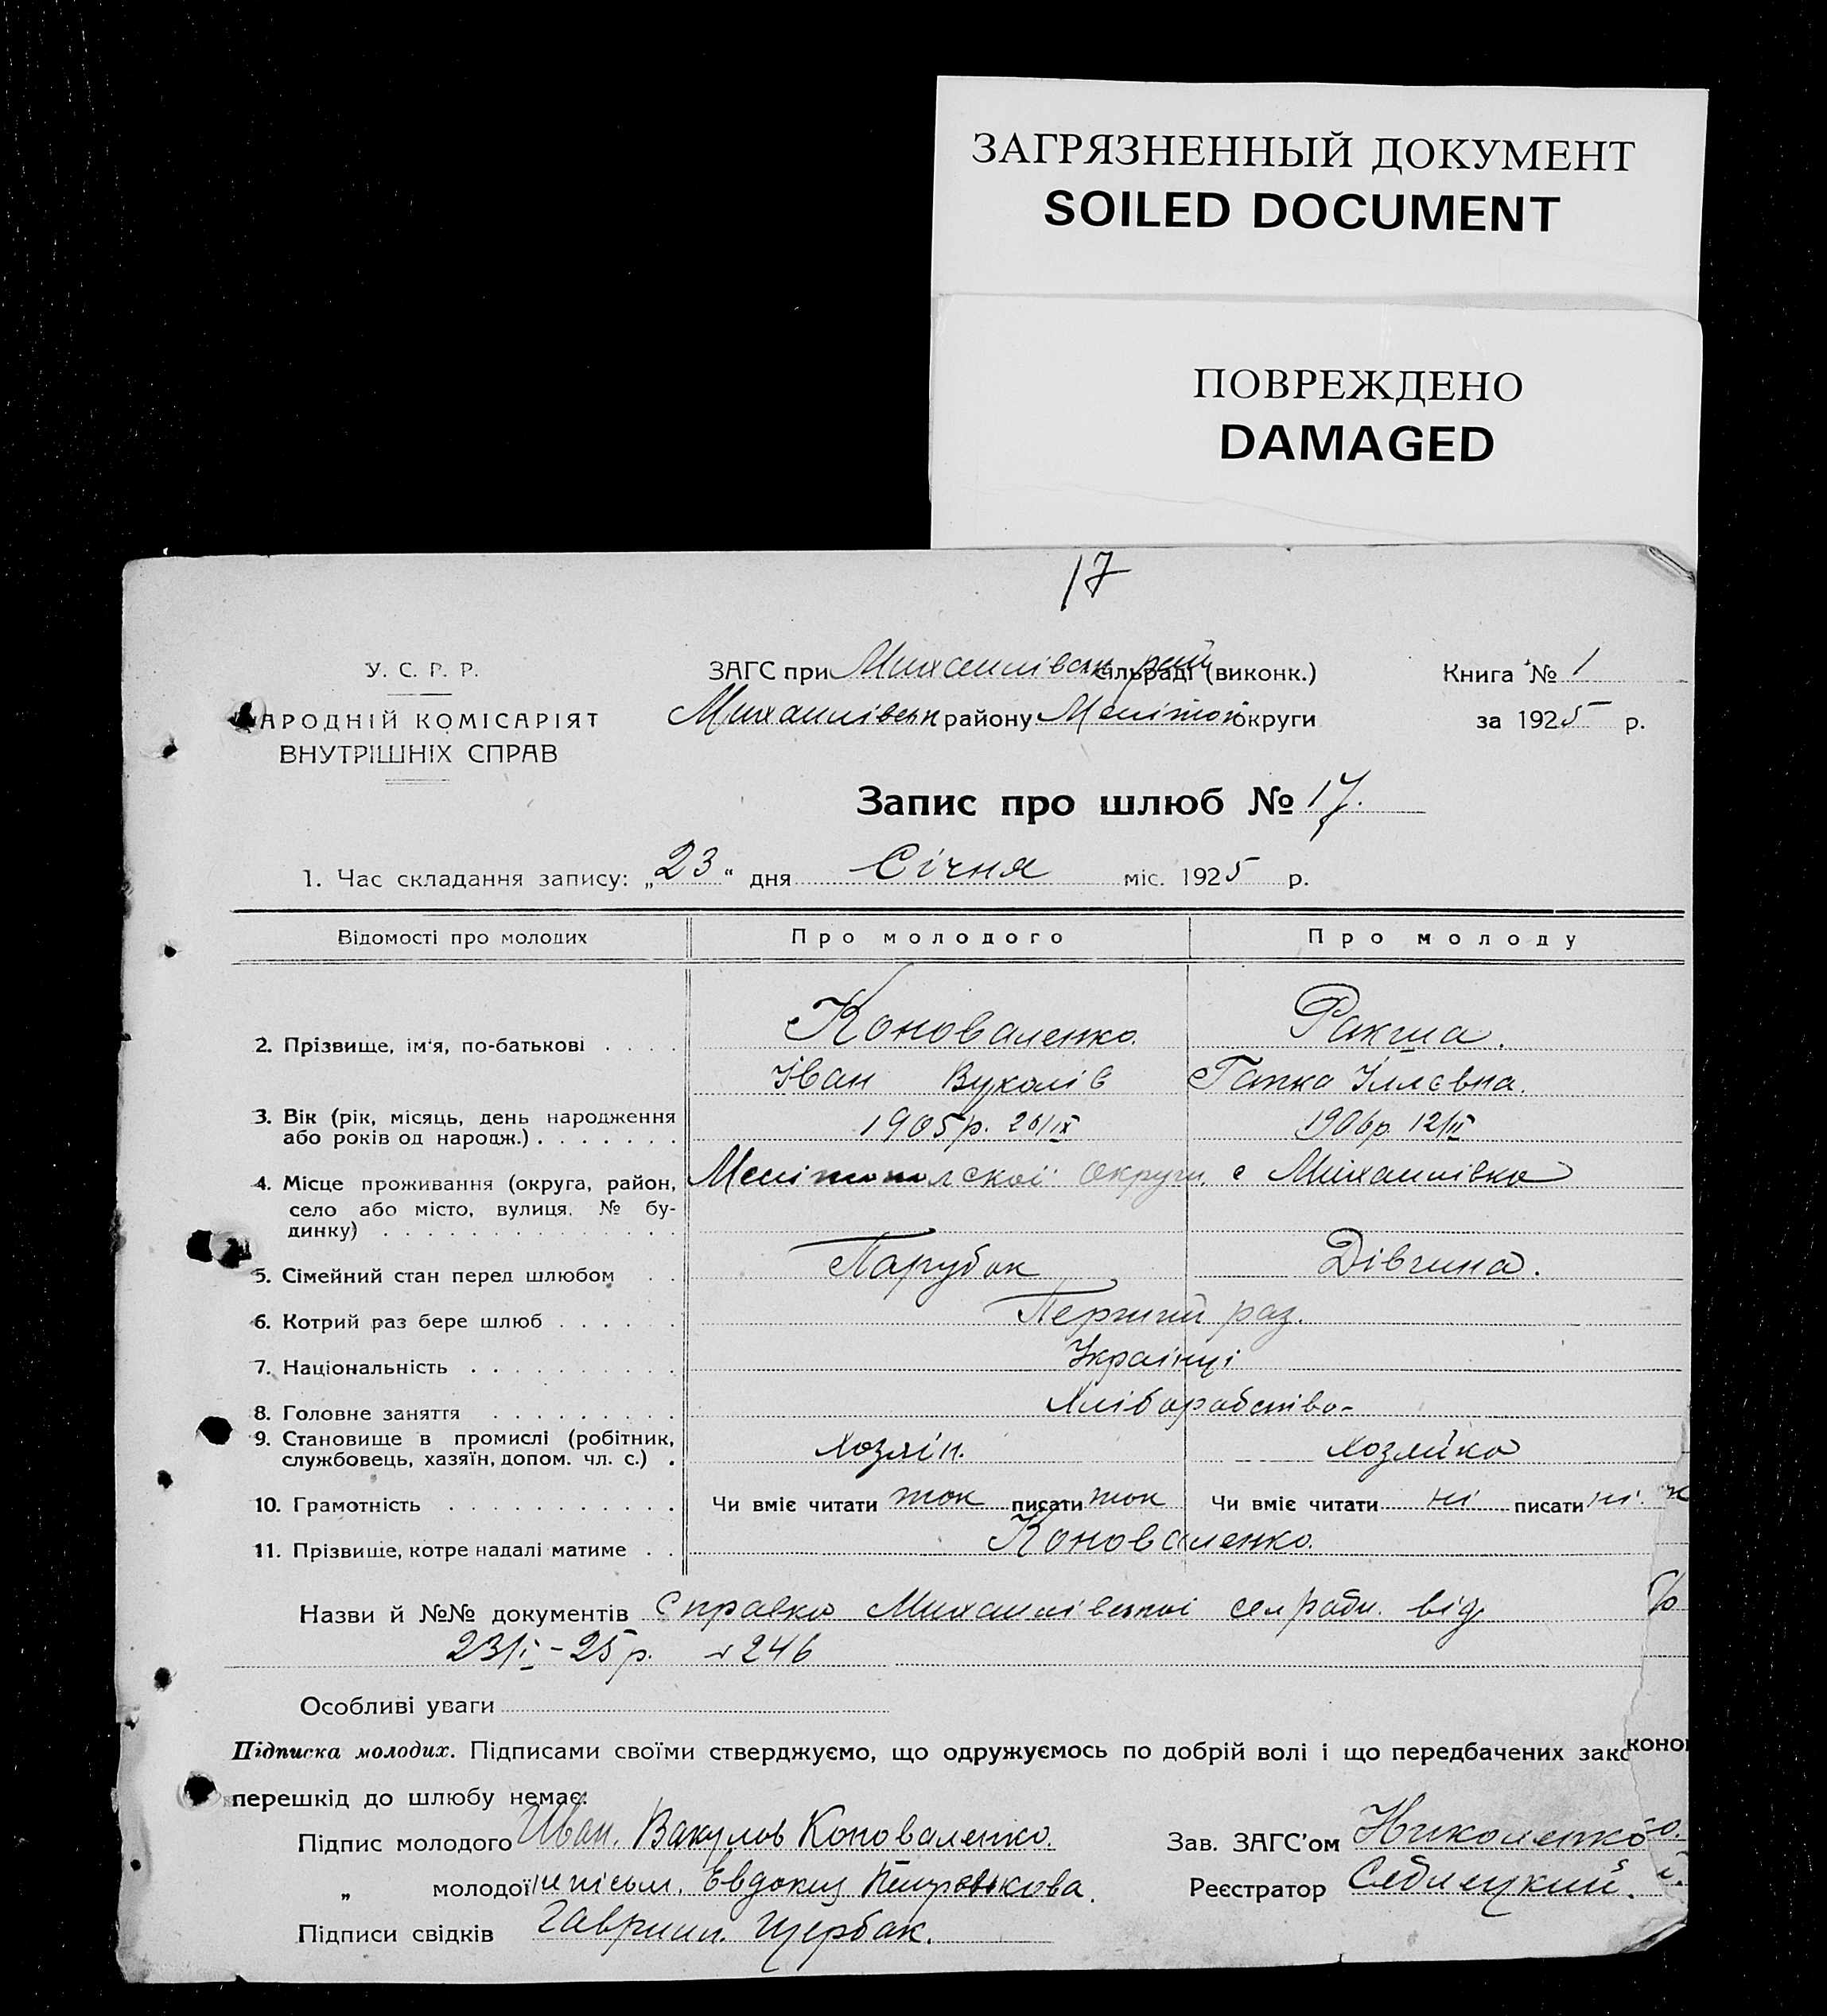 ЗАГРЯЗНЕННЫЙ ДОКУМЕНТ
SOILED DOCUMENT
ПОВРЕЖДЕНО
DAMAGED
17
У. С. Р. Р.
АРОДНІЙ КОМІСАРІЯТ
ВНУТРІШНІХ СПРАВ
ЗАГС при Михайлівськ рай сільраді (виконк.)
Михайлівськ району Меліtоп округи
Книга № 1
за 1925 р.
Запис про шлюб № 17.
1. Час складання запису: „23“ дня Січня міс. 1925 р.
Відомості про молодих Про молодого Про молоду
2. Прізвище, ім'я, по-батькові . . . . Коноваленко. Ракша.
Іван Вуколів Гапка Іллєвна.
3. Вік (рік, місяць, день народження
або років од народж.) . . . . . . . 1905 р. 26/IX 1906 р. 12/II
4. Місце проживання (округа, район,
село або місто, вулиця, № бу-
динку) . . . . . . . . . . . . . .
Мелітополскої округи с Михайлівка
5. Сімейний стан перед шлюбом . . Парубок Дівчина.
6. Котрий раз бере шлюб . . . . . . Перший раз.
7. Національність . . . . . . . . . . Українці
8. Головне заняття . . . . . . . . . Хліборобство-
9. Становище в промислі (робітник,
службовець, хазяїн, допом. чл. с.) . Хозяін. хозяйка
10. Грамотність . . . . . . . . . . . Чи вміє читати так писати так Чи вміє читати ні писати ні.
11. Прізвище, котре надалі матиме . . Коноваленко.
Назви й №№ документів Справка Михайлівської селради. від
23/I-25 р. № 246
Особливі уваги
Підписка молодих. Підписами своїми стверджуємо, що одружуємось по добрій волі і що передбачених зако
коно
перешкід до шлюбу немає.
Підпис молодого Иван. Вакулов Коноваленко.
„ молодої непісьм. Евдокия
Підписи свідків Гавриил. Щербак.
Зав. ЗАГС'ом Николенко
Реєстратор